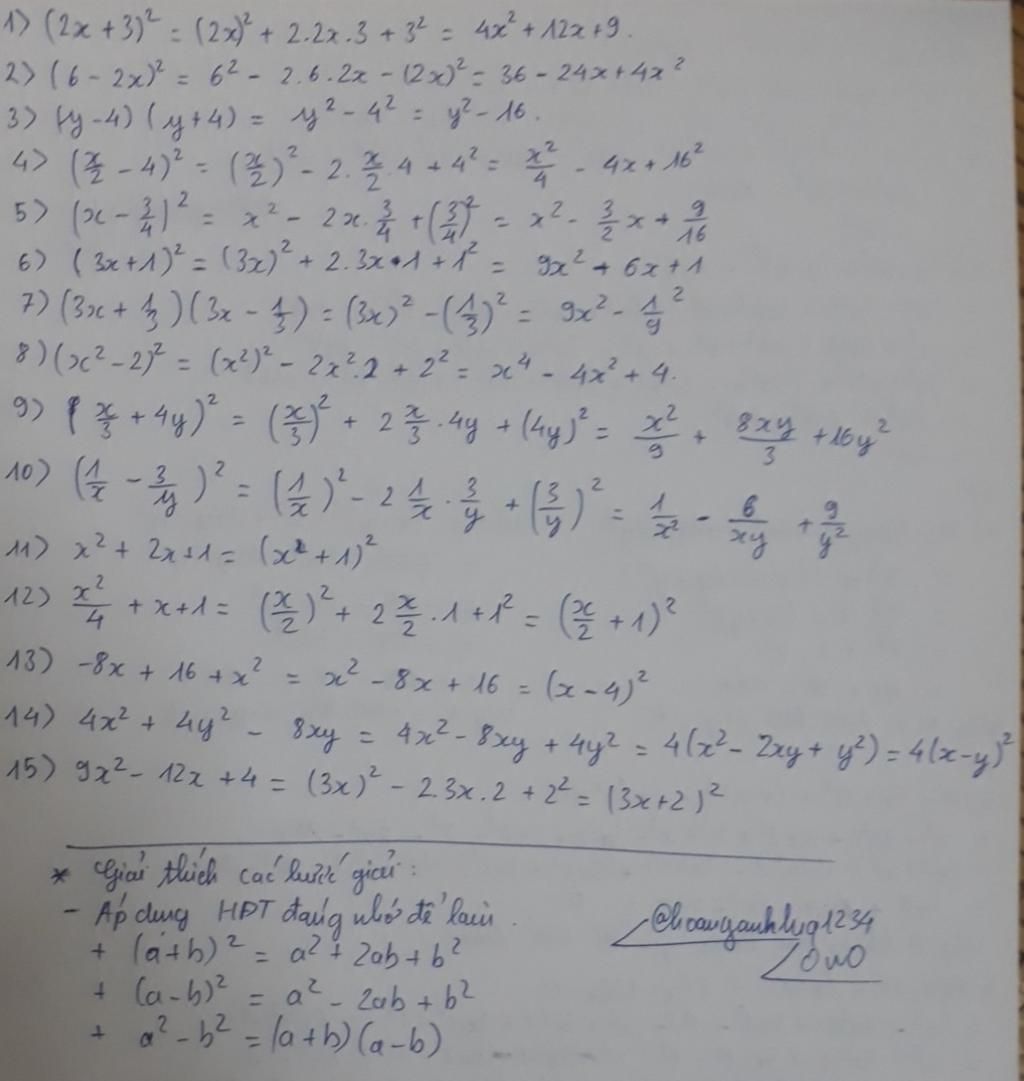 1) (2x + 3)² = (2x)² + 2.2x.3 + 3² = 4x² + 12x + 9.
2) (6 - 2x)² = 6² - 2.6.2x - (2x)² = 36 - 24x + 4x²
3) (y-4)(y+4) = y² - 4² = y² - 16.
4) (x/2 - 4)² = (x/2)² - 2.x/2.4 + 4² = x²/4 - 4x + 16²
5) (x - 3/4)² = x² - 2x.3/4 + (3/4)² = x² - 3/2x + 9/16
6) (3x+1)² = (3x)² + 2.3x.1 + 1² = 9x² + 6x + 1
7) (3x + 1/3)(3x - 1/3) = (3x)² - (1/3)² = 9x² - 1/9²
8) (x² - 2)² = (x²)² - 2x².2 + 2² = x⁴ - 4x² + 4.
9) (x/3 + 4y)² = (x/3)² + 2x/3.4y + (4y)² = x²/9 + 8xy/3 + 16y²
10) (1/x - 3/y)² = (1/x)² - 2 1/x . 3/y + (3/y)² = 1/x² - 6/xy + 9/y²
11) x² + 2x+1 = (x + 1)²
12) x²/4 + x+1 = (x/2)² + 2x/2.1 + 1² = (x/2 + 1)²
13) -8x + 16 + x² = x² - 8x + 16 = (x - 4)²
14) 4x² + 4y² - 8xy = 4x² - 8xy + 4y² = 4(x² - 2xy + y²) = 4(x-y)²
15) 9x² - 12x + 4 = (3x)² - 2.3x.2 + 2² = (3x+2)²
* Giải thích các bước giải:
- Áp dụng HĐT đáng nhớ để làm.
+ (a+b)² = a² + 2ab + b²
+ (a-b)² = a² - 2ab + b²
+ a² - b² = (a+b)(a-b)
@hoanganhlvg1234
OwO